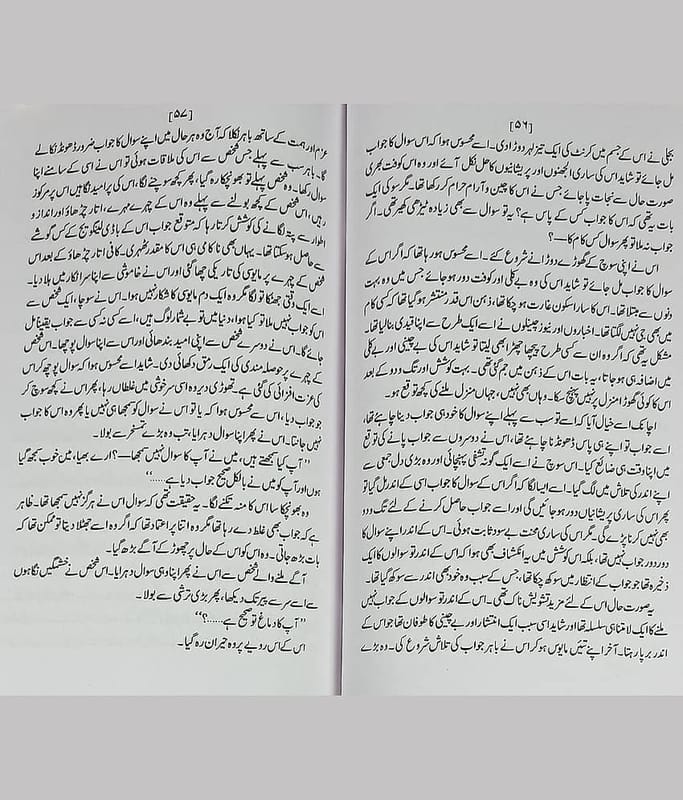 [۵۶]
بجلی نے اس کے جسم میں کرنٹ کی ایک تیز لہر دوڑا دی۔ اسے محسوس ہوا کہ اس سوال کا جواب
مل جائے تو شاید اس کی ساری الجھنوں اور پریشانیوں کا حل نکل آئے اور وہ اس کوفت بھری
صورت حال سے نجات پا جائے جس نے اس کا چین و آرام حرام کر رکھا تھا۔ مگر سو کی ایک
بات یہ تھی کہ اس کا جواب کس کے پاس ہے؟ یہ تو سوال سے بھی زیادہ ٹیڑھی کھیر تھی۔ اگر
جواب نہ ملا تو پھر سوال کس کام کا—؟
اس نے اپنی سوچ کے گھوڑے دوڑانے شروع کئے۔ اسے محسوس ہو رہا تھا کہ اگر اس کے
سوال کا جواب مل جائے تو شاید اس کی وہ بے کلی اور کوفت دور ہو جائے جس میں وہ بہت
دنوں سے مبتلا تھا۔ اس کا سارا سکون غارت ہو چکا تھا، ذہن اس قدر منتشر ہو گیا تھا کہ کسی کام
میں بھی جی نہیں لگتا تھا۔ اخباروں اور نیوز چینلوں نے اسے ایک طرح سے اپنا قیدی بنا لیا تھا۔
مشکل یہ تھی کہ اگر وہ ان سے کسی طرح پیچھا چھڑا بھی لیتا تو شاید اس کی بے چینی اور بے کلی
میں اضافہ ہی ہو جاتا، یہ بات اس کے ذہن میں جم گئی تھی۔ بہت کوشش اور تگ و دو کے بعد
اس کا کوئی گھوڑا منزل پر نہیں پہنچ سکا۔ وہاں بھی نہیں، جہاں منزل ملنے کی کچھ توقع ہو۔
اچانک اسے خیال آیا کہ اسے تو سب سے پہلے اپنے سوال کا خود ہی جواب دینا چاہئے تھا،
اسے جواب تو اپنے ہی پاس ڈھونڈنا چاہئے تھا، اس نے دوسروں سے جواب پانے کی توقع
میں اپنا وقت ہی ضائع کیا۔ اس سوچ نے اسے ایک گونہ تشفی پہنچائی اور وہ بڑی دل جمعی سے
اپنے اندر کی تلاش میں لگ گیا۔ اسے ایسا لگا کہ اگر اس کے سوال کا جواب اسی کے اندر مل گیا تو
پھر اس کی ساری پریشانیاں دور ہو جائیں گی اور اسے جواب حاصل کرنے کے لئے تگ و دو
بھی نہیں کرنا پڑے گی۔ مگر اس کی ساری محنت بے سود ثابت ہوئی۔ اس کے اندر اپنے سوال کا
دور دور جواب نہیں تھا، بلکہ اس کوشش میں یہ انکشاف بھی ہوا کہ اس کے اندر تو سوالوں کا ایک
ذخیرہ تھا جو جواب کے انتظار میں سوکھ چکا تھا، جس کے سبب وہ خود بھی اندر سے سوکھ گیا تھا۔
یہ صورت حال اس کے لئے مزید تشویش ناک تھی۔ اس کے اندر تو سوالوں کے جواب نہیں
ملنے کا ایک لامتناہی سلسلہ تھا اور شاید اسی سبب ایک انتشار اور بے چینی کا طوفان تھا جو اس کے
اندر برپا رہتا۔ آخر اپنے تئیں مایوس ہو کر اس نے باہر جواب کی تلاش شروع کی۔ وہ بڑے
[۵۷]
عزم اور ہمت کے ساتھ باہر نکلا کہ آج وہ ہر حال میں اپنے سوال کا جواب ضرور ڈھونڈ نکالے
گا۔ باہر سب سے پہلے جس شخص سے اس کی ملاقات ہوئی تو اس نے اسی کے سامنے اپنا
سوال رکھا۔ وہ شخص پہلے تو بھونچکا رہ گیا، پھر کچھ سوچنے لگا، اس کی پرامید نگاہیں اس پر مرکوز
رہیں، اس شخص کے کچھ بولنے سے پہلے وہ اس کے چہرے مہرے، اتار چڑھاؤ اور انداز و
اطوار سے پتہ لگانے کی کوشش کرتا رہا کہ متوقع جواب اس کے باڈی لینگویج کے کس گوشے
سے حاصل ہو سکتا تھا۔ یہاں بھی ناکامی ہی اس کا مقدر ٹھہری۔ کافی اتار چڑھاؤ کے بعد اس
شخص کے چہرے پر مایوسی کی تاریکی چھا گئی اور اس نے خاموشی سے اپنا سر انکار میں ہلا دیا۔
اسے ایک وقتی جھٹکا تو لگا مگر وہ ایک دم مایوسی کا شکار نہیں ہوا۔ اس نے سوچا، ایک شخص سے
اس کو جواب نہیں ملا تو کیا ہوا، دنیا میں تو بے شمار لوگ ہیں، اسے کسی نہ کسی سے جواب یقیناً مل
جائے گا۔ اس نے دوسرے شخص سے اپنی امید بندھائی اور اس سے اپنا سوال پوچھا۔ اس شخص
کے چہرے پر حوصلہ مندی کی ایک رمق دکھائی دی۔ شاید اسے محسوس ہوا کہ سوال پوچھ کر اس
کی عزت افزائی کی گئی ہے۔ تھوڑی دیر وہ اسی سرخوشی میں غلطاں رہا، پھر اس نے کچھ سوچ کر
جو جواب دیا، اس سے محسوس ہوا کہ یا تو اس نے سوال کو سمجھا ہی نہیں یا پھر وہ اس کا جواب
نہیں جانتا۔ اس نے پھر اپنا سوال دہرایا، تب وہ بڑے تمسخر سے بولا۔
’’آپ کیا سمجھتے ہیں، میں نے آپ کا سوال نہیں سمجھا—؟ ارے بھیا، میں خوب سمجھ گیا
ہوں اور آپ کو میں نے بالکل صحیح جواب دیا ہے.....‘‘
وہ بھونچکا سا اس کا منہ تکنے لگا۔ یہ حقیقت تھی کہ سوال اس نے ہرگز نہیں سمجھا تھا۔ ظاہر
ہے کہ جواب بھی غلط دے رہا تھا مگر وہ اتنا پر اعتماد تھا کہ اگر وہ اسے جھٹلا دیتا تو ممکن تھا کہ
بات بڑھ جاتی۔ وہ اس کو اس کے حال پر چھوڑ کے آگے بڑھ گیا۔
آگے ملنے والے شخص سے اس نے پھر اپنا وہی سوال دہرایا۔ اس شخص نے خشمگیں نگاہوں
سے اسے سر سے پیر تک دیکھا، پھر بڑی ترشی سے بولا۔
’’آپ کا دماغ تو صحیح ہے.....؟‘‘
اس کے اس رویے پر وہ حیران رہ گیا۔